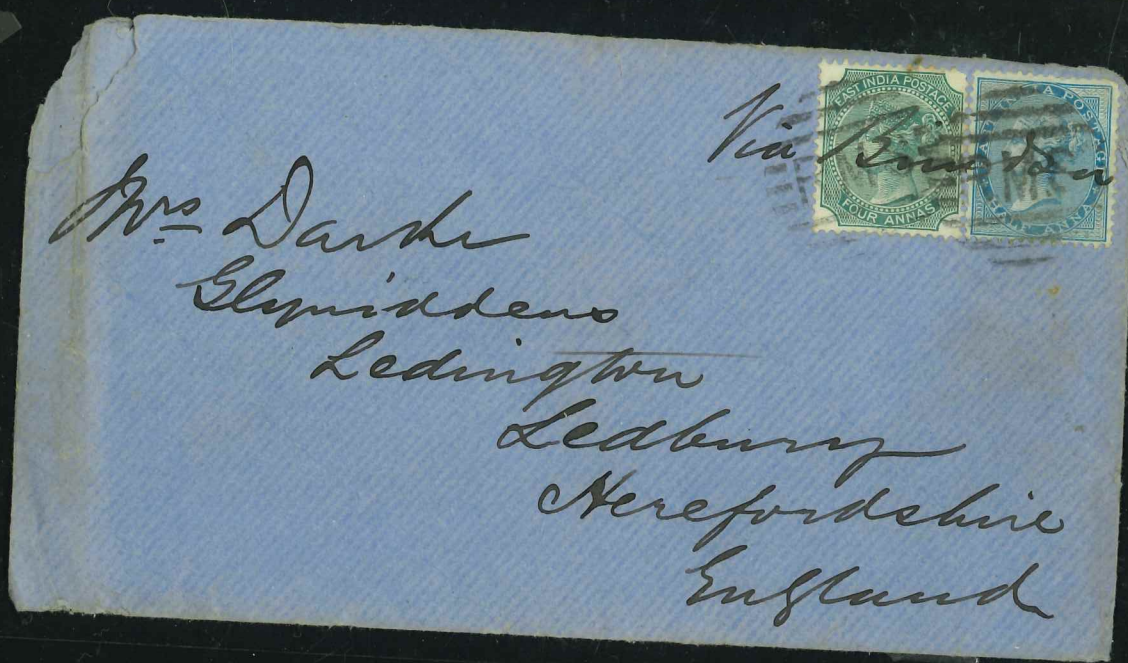 Via Brindisi
EAST INDIA POSTAGE
FOUR ANNAS
EAST INDIA POSTAGE
HALF ANNA
Mrs Darke
Glyniddens
Ledington
Ledbury
Herefordshire
England